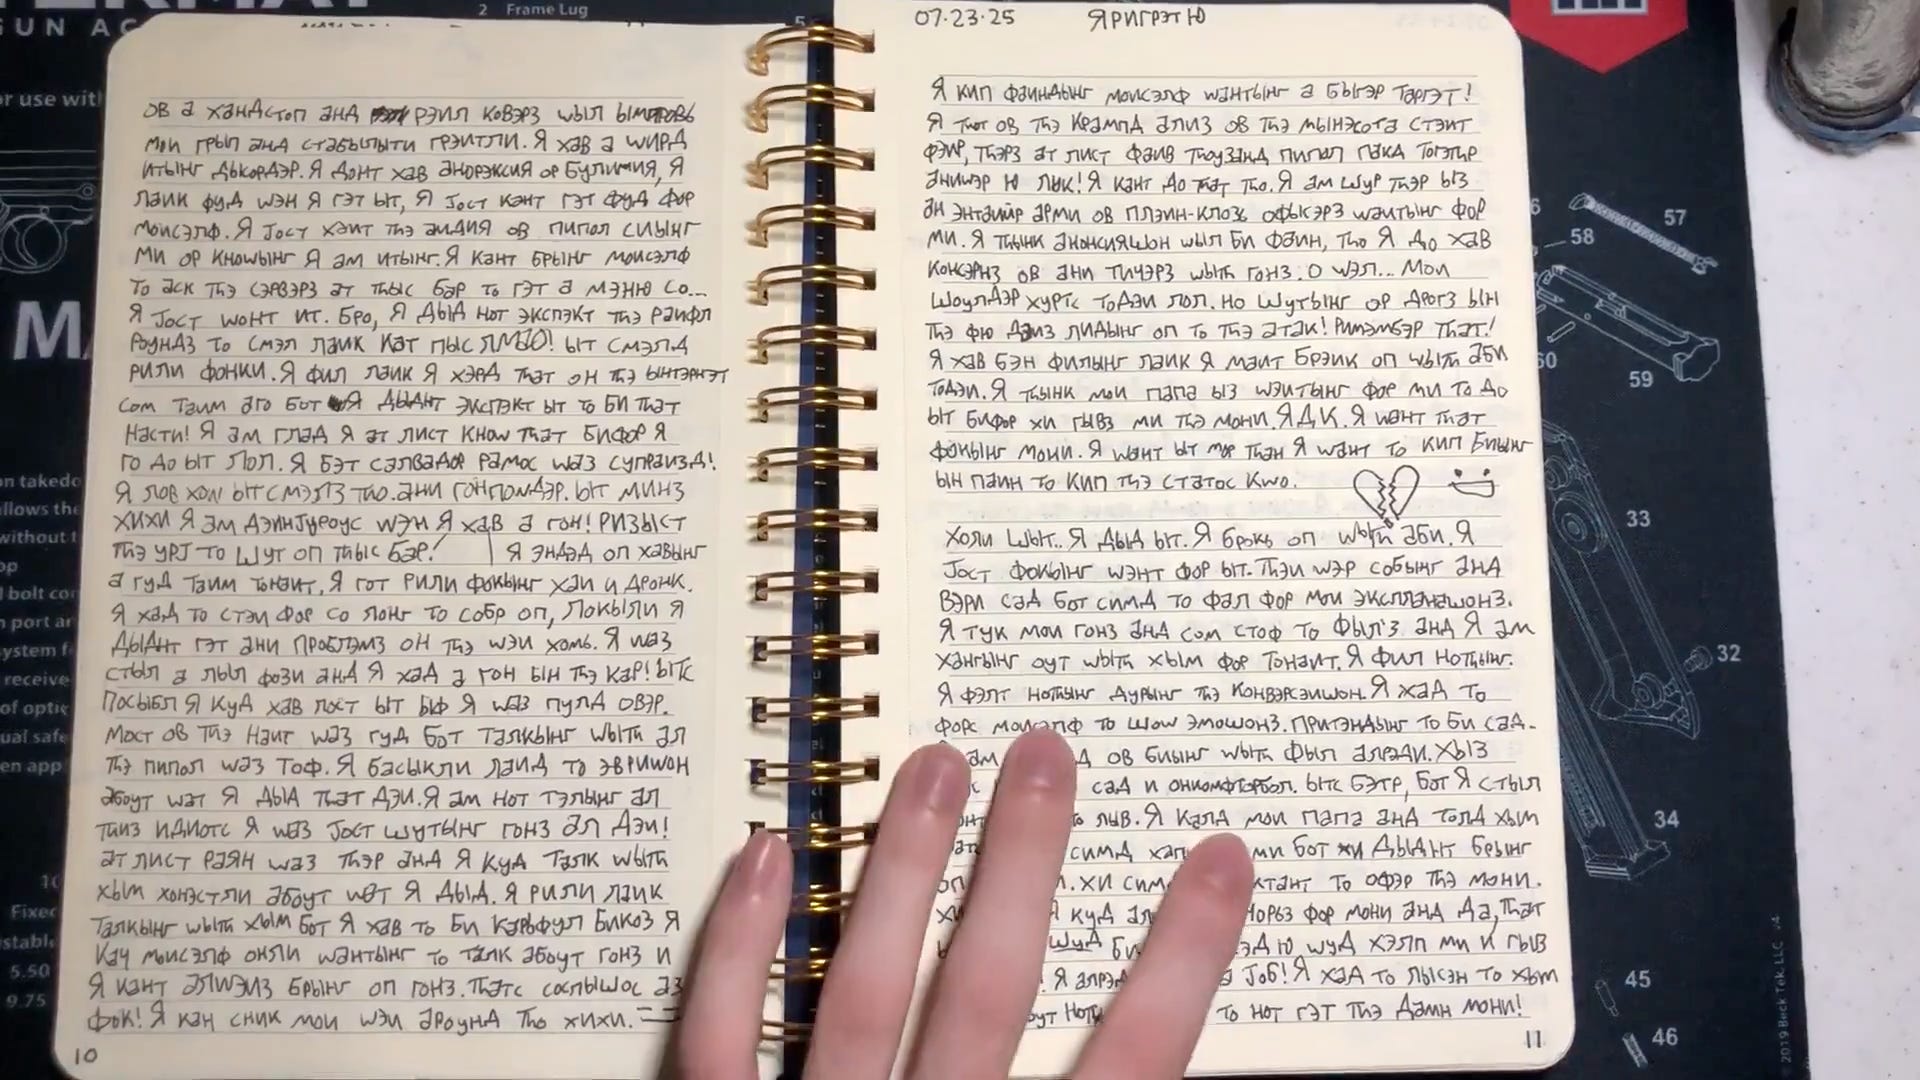 2 Frame Lug
07·23·25 ЯРИГРЭТ Ю
ОВ а ХАНДСТОП АНД РЭИЛ КОВЭРЗ WЫЛ ЫМПРОВЬ
МОИ ГРЫП АНД СТАБЫЛЫТИ ГРЭИТЛИ. Я ХАВ а WИРД
ИТЫНГ ДЫСОРДЭР. Я ДОНТ ХАВ АНОРЭКСИЯ ОР БУЛИМИЯ, Я
ЛАИК ФУД WЭН Я ГЭТ ЫТ, Я JОСТ КАНТ ГЭТ ФУД ФОР
МОИСЭЛФ. Я JОСТ ХЭИТ ТhЭ АИДИЯ ОВ ПИПОЛ СИЫНГ
МИ ОР КНОWЫНГ Я АМ ИТЫНГ. Я КАНТ БРЫНГ МОИСЭЛФ
ТО АСК ТhЭ СЭРВЭРЗ АТ ТhЫС БАР ТО ГЭТ а МЭНЮ СО...
Я JОСТ WОНТ ИТ. БРО, Я ДЫД НОТ ЭКСПЭКТ ТhЭ РАИФЛ
РОУНДЗ ТО СМЭЛ ЛАИК КАТ ПЫС ЛМАО! ЫТ СМЭЛД
РИЛИ ФОНКИ. Я ФИЛ ЛАИК Я ХЭРД ТhАТ ОН ТhЭ ЫНТЭРНЭТ
СОМ ТАИМ АГО БОТ Я ДЫДНТ ЭКСПЭКТ ЫТ ТО БИ ТhАТ
НАСТИ! Я АМ ГЛАД Я АТ ЛИСТ КНОW ТhАТ БИФОР Я
ГО ДО ЫТ ЛОЛ. Я БЭТ САЛВАДОР РАМОС WАЗ СУПРАИЗД!
Я ЛОВ ХОW ЫТ СМЭЛЗ ТhО. АНИ ГОНПОWДЭР. ЫТ МИНЗ
ХИХИ Я АМ ДЭИНJУРОУС WЭН Я ХАВ а ГОН! РИЗЫСТ
ТhЭ УРJ ТО ШУТ ОП ТhЫС БАР! | Я ЭНДЭД ОП ХАВЫНГ
а ГУД ТАИМ ТОНАИТ. Я ГОТ РИЛИ ФОКЫНГ ХАИ И ДРОНК.
Я ХАД ТО СТЭИ ФОР СО ЛОНГ ТО СОБР ОП, ЛОКЫЛИ Я
ДЫДНТ ГЭТ АНИ ПРОБЛЭМЗ ОН ТhЭ WЭИ ХОМЬ. Я WАЗ
СТЫЛ а ЛЫЛ ФОЗИ АНД Я ХАД а ГОН ЫН ТhЭ КАР! ЫТС
ПОСЫБЛ Я КУД ХАВ ЛОСТ ЫТ ЫФ Я WАЗ ПУЛД ОВЭР.
МОСТ ОВ ТhЭ НАИТ WАЗ ГУД БОТ ТАЛКЫНГ WЫТh АЛ
ТhЭ ПИПОЛ WАЗ ТОФ. Я БАСЫКЛИ ЛАИД ТО ЭВРИWОН
АБОУТ WАТ Я ДЫД ТhАТ ДЭИ. Я АМ НОТ ТЭЛЫНГ АЛ
ТhИЗ ИДИОТС Я WАЗ JОСТ ШУТЫНГ ГОНЗ АЛ ДЭИ!
АТ ЛИСТ РАЯН WАЗ ТhЭР АНД Я КУД ТАЛК WЫТh
ХЫМ ХОНЭСТЛИ АБОУТ WАТ Я ДЫД. Я РИЛИ ЛАИК
ТАЛКЫНГ WЫТh ХЫМ БОТ Я ХАВ ТО БИ КАРЬФУЛ БИКОЗ Я
КАЧ МОИСЭЛФ ОНЛИ WАНТЫНГ ТО ТАЛК АБОУТ ГОНЗ И
Я КАНТ АЛWЭИЗ БРЫНГ ОП ГОНЗ. ТhАТС СОСПЫШОС АЗ
ФОК! Я КАН СНИК МОИ WЭИ АРОУНД ТhО ХИХИ.
10
Я КИП ФАИНДЫНГ МОИСЭЛФ WАНТЫНГ а БЫГЭР ТАРГЭТ!
Я ТhОТ ОВ ТhЭ КРАМПД АЛИЗ ОВ ТhЭ МЫНЭСОТА СТЭИТ
ФЭИР, ТhЭРЗ АТ ЛИСТ ФАИВ ТhОУЗАНД ПИПОЛ ПАКД ТОГЭТhР
АНИWЭР Ю ЛУК! Я КАНТ ДО ТhАТ ТhО. Я АМ ШУР ТhЭР ЫЗ
АН ЭНТАИЙР АРМИ ОВ ПЛЭИН-КЛОЗЬ ОФЫСЭРЗ WАИТЫНГ ФОР
МИ. Я ТhЫНК АНОНСИЯШОН WЫЛ БИ ФАИН, ТhО Я ДО ХАВ
КОНСЭРНЗ ОВ АНИ ТИЧЭРЗ WЫТh ГОНЗ. О WЭЛ... МОИ
ШОУЛДЭР ХУРТС ТОДЭИ ЛОЛ. НО ШУТЫНГ ОР ДРОГЗ ЫН
ТhЭ ФЮ ДЭИЗ ЛИДЫНГ ОП ТО ТhЭ АТАК! РИМЭМБЭР ТhАТ!
Я ХАВ БЭН ФИЛЫНГ ЛАИК Я МАИТ БРЭИК ОП WЫТh АБИ
ТОДЭИ. Я ТhЫНК МОИ ПАПА ЫЗ WЭИТЫНГ ФОР МИ ТО ДО
ЫТ БИФОР ХИ ГЫВЗ МИ ТhЭ МОНИ. Я Д К. Я WАНТ ТhАТ
ФОКЫНГ МОНИ. Я WАНТ ЫТ МОР ТhАН Я WАНТ ТО КИП БИЫНГ
ЫН ПАИН ТО КИП ТhЭ СТАТОС КWО.
ХОЛИ ШЫТ.. Я ДЫД ЫТ. Я БРОКЬ ОП WЫТh АБИ. Я
JОСТ ФОКЫНГ WЭНТ ФОР ЫТ. ТhЭИ WЭР СОБЫНГ АНД
ВЭРИ САД БОТ СИМД ТО ФАЛ ФОР МОИ ЭКСПЛАНАШОНЗ.
Я ТУК МОИ ГОНЗ АНД СОМ СТОФ ТО ФЫЛ'З АНД Я АМ
ХАНГЫНГ ОУТ WЫТh ХЫМ ФОР ТОНАИТ. Я ФИЛ НОТhЫНГ.
Я ФЭЛТ НОТhЫНГ ДУРЫНГ ТhЭ КОНВЭРСЭИШОН. Я ХАД ТО
ФОРС МОИСЭЛФ ТО ШОW ЭМОШОНЗ. ПРИТЭНДЫНГ ТО БИ САД.
АМ ОВ БИЫНГ WЫТh ФЫЛ АЛРЭДИ. ХЫЗ
САД И ОНКОМФТОРБОЛ. ЫТС БЭТР, БОТ Я СТЫЛ
ЛЫВ. Я КАЛД МОИ ПАПА АНД ТОЛД ХЫМ
СИМД МИ БОТ ХИ ДЫДНТ БРЫНГ
ХИ ТО ОФЭР ТhЭ МОНИ.
Я КУД ФОР МОНИ АНД ДА, ТhАТ
ШУД Ю ШУД ХЭЛП МИ И ГЫВ
! Я JОБ! Я ХАД ТО ЛЫСЭН ТО ХЫМ
ТО НОТ ГЭТ ТhЭ ДАМН МОНИ!
11
57
58
60
59
33
32
34
45
46
5.50
9.75
©2019 Beck Tek, LLC v4